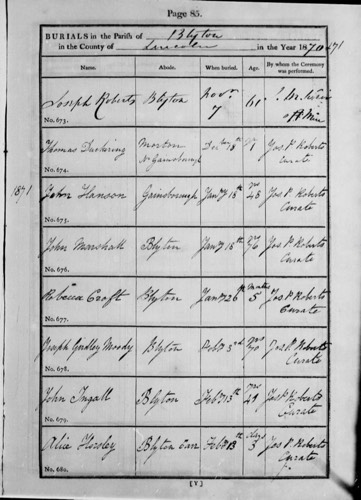 Page 85.
BURIALS in the Parish of Blyton
in the County of Lincoln in the Year 1870 & 71
Name. Abode. When buried. Age. By whom the Ceremony was performed.
Joseph Roberts Blyton Novr 7 61
No. 673.
Thomas Morton Nr Gainsborough Decbr Jos P. Roberts Curate
No. 674.
1871
Hanson Gainsborough Jany 18th 48 Jos P. Roberts Curate
No. 675.
John Marshall Blyton Jany 18th 76 Jos P. Roberts Curate
No. 676.
Rebecca Croft Blyton Jany 26th 5 Jos P. Roberts Curate
No. 677.
Joseph Moody Blyton Feby 3rd 70 Jos P. Roberts Curate
No. 678.
John Ingall Blyton Feby 13th Jos P. Roberts Curate
No. 679.
Alice Horsley Blyton Carr Feby 13th 3 Jos P. Roberts Curate
No. 680.